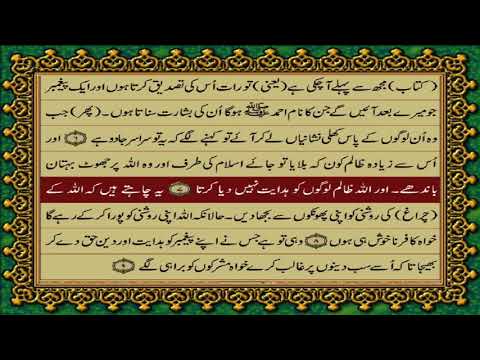 (کتاب) مجھ سے پہلے آچکی ہے (یعنی) تورات اُس کی تصدیق کرتا ہوں اور ایک پیغمبر
جو میرے بعد آئیں گے جن کا نام احمد ﷺ ہوگا اُن کی بشارت سناتا ہوں۔ (پھر) جب
وہ اُن لوگوں کے پاس کھلی نشانیاں لے کر آئے تو کہنے لگے کہ یہ تو سراسر جادو ہے ۶ اور
اُس سے زیادہ ظالم کون کہ بلایا تو جائے اسلام کی طرف اور وہ اللہ پر جھوٹ بہتان
باندھے۔ اور اللہ ظالم لوگوں کو ہدایت نہیں دیا کرتا ۷ یہ چاہتے ہیں کہ اللہ کے
(چراغ) کی روشنی کو اپنی پھونکوں سے بجھا دیں۔ حالانکہ اللہ اپنی روشنی کو پورا کر کے رہے گا
خواہ کافر ناخوش ہی ہوں ۸ وہی تو ہے جس نے اپنے پیغمبر کو ہدایت اور دین حق دے کر
بھیجا تاکہ اُسے سب دینوں پر غالب کرے خواہ مشرکوں کو برا ہی لگے ۹